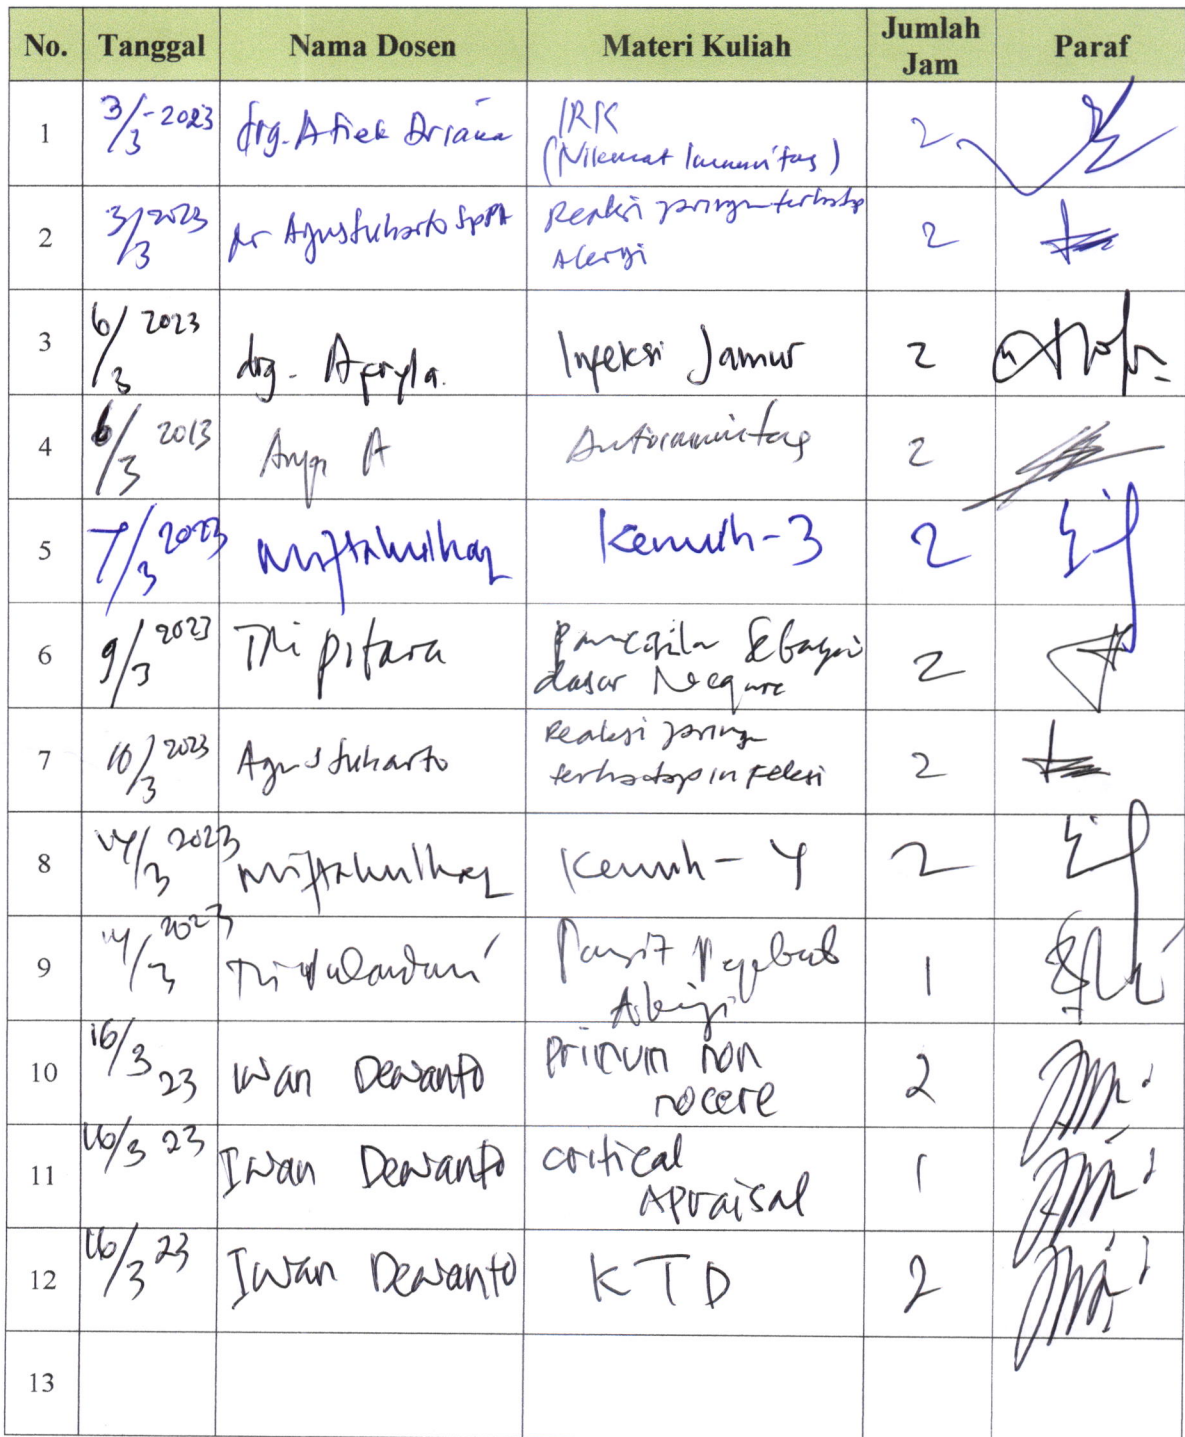 No. Tanggal Nama Dosen Materi Kuliah Jumlah Jam Paraf
1 3/3-2023 drg. Atiek Driana IRK 2
(Nikmat Imunitas)
2 3/3 2023 dr Agus Suharto SpPA Reaksi jaringan terhadap 2
Alergi
3 6/3 2023 drg. Infeksi Jamur 2
4 6/3 2013 A Autoimunitas 2
5 7/3 2023 Miftahulhaq Kemuh-3 2
6 9/3 2023 Tri Pitara Pancasila Sebagai 2
dasar Negara
7 10/3 2023 Agus Suharto Reaksi jaringan 2
terhadap infeksi
8 14/3 2023 Miftahulhaq Kemuh-4 2
9 14/3 2023 Tri Wulandari 1
Alergi
10 16/3 23 Iwan Dewanto primum non 2
nocere
11 16/3 23 Iwan Dewanto critical 1
Apraisal
12 16/3 23 Iwan Dewanto KTD 2
13